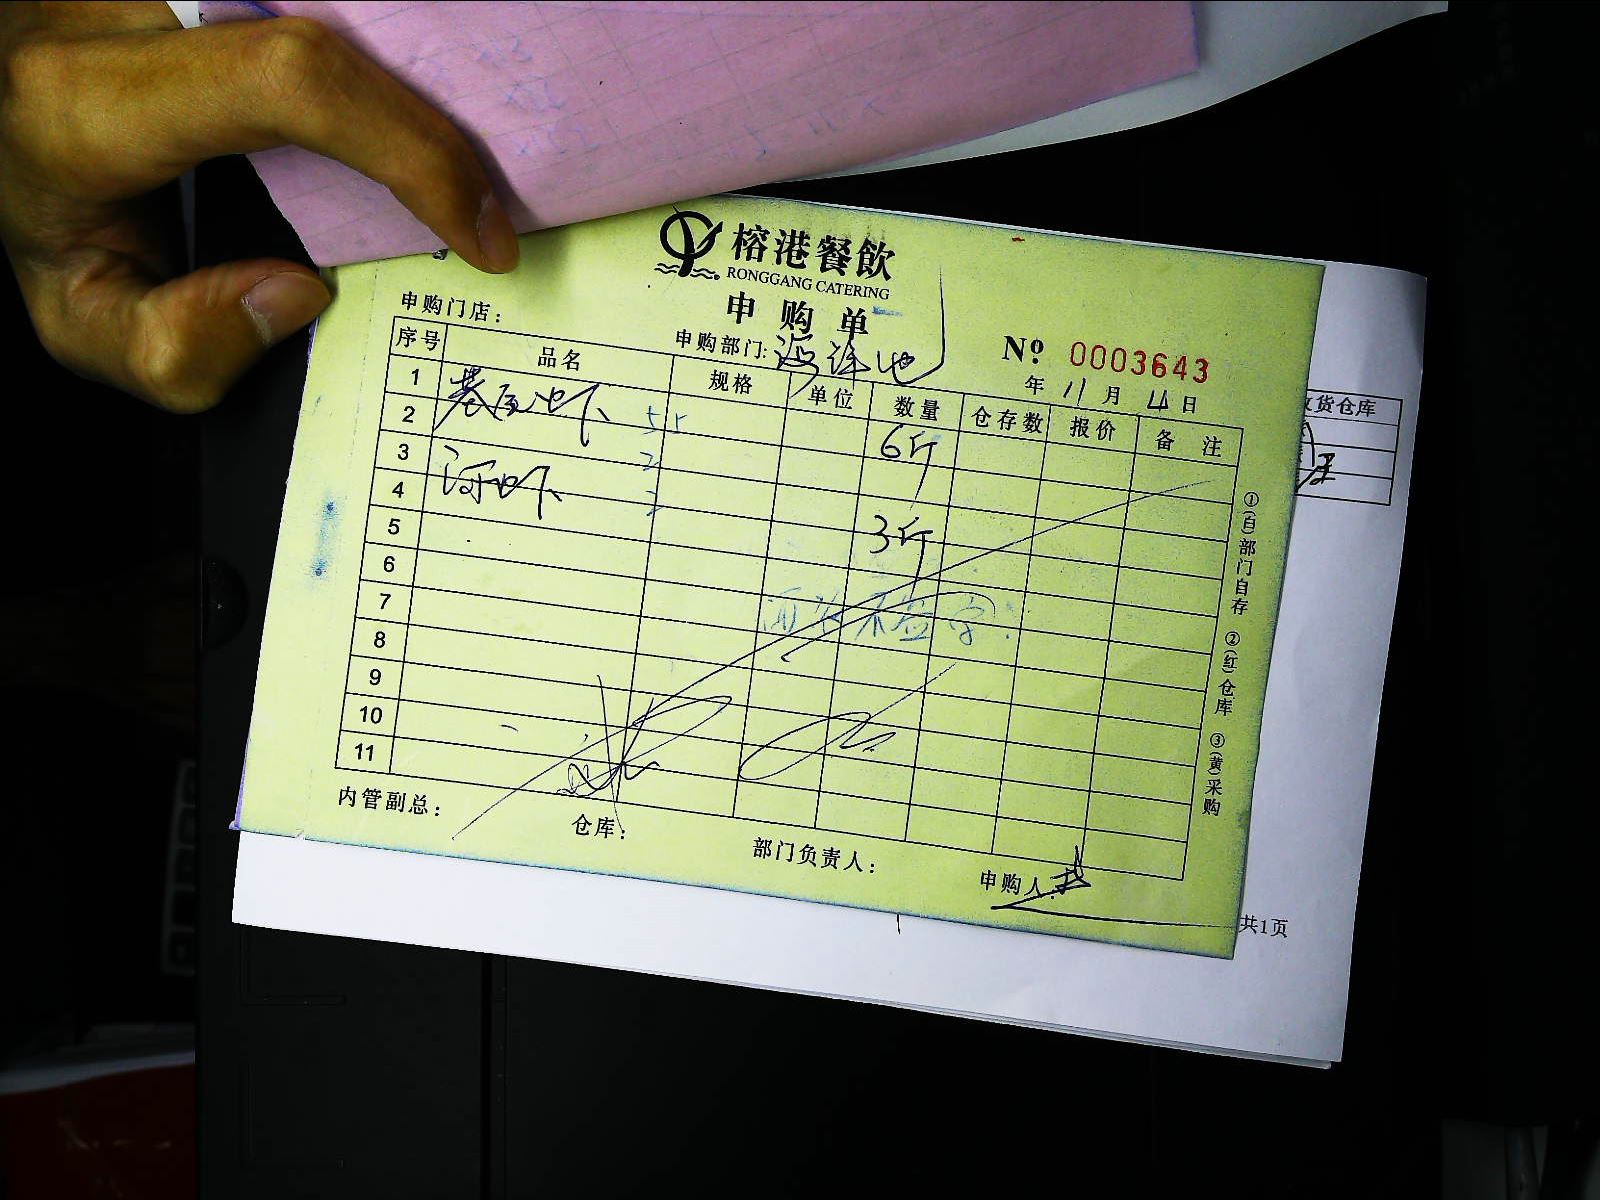 榕港餐飲
RONGGANG CATERING
申购单
申购门店：
申购部门: 海鲜池
№ 0003643
年 11 月 4 日
序号 品名 规格 单位 数量 仓存数 报价 备注
1 基围虾 6斤
2
3 河虾 3斤
4
5
6
7
8
9
10
11
内管副总：
仓库：
部门负责人：
申购人:
①(白)部门自存 ②(红)仓库 ③(黄)采购
货仓库
共1页